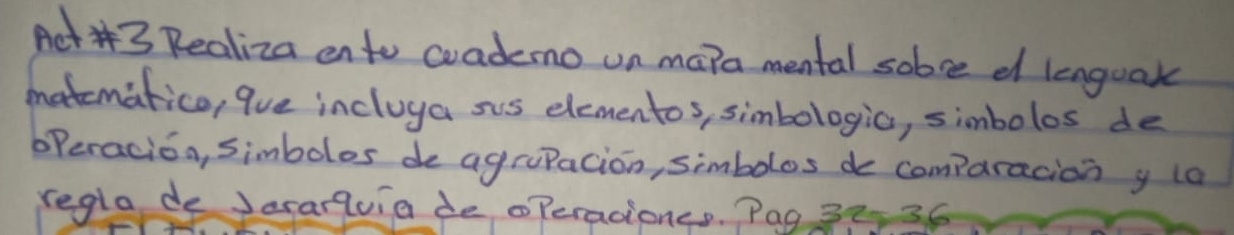 Act #3 Realiza en tu cuaderno un mapa mental sobre el lenguaje
matemático, que incluya sus elementos, simbologia, simbolos de
operación, simbolos de agrupación, simbolos de comparación y la
regla de Jerarquía de operaciones. Pag 32-36